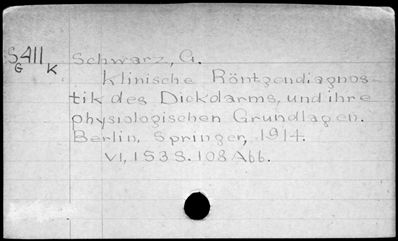 S411 Schwarz, G.
G K
Klinische Röntgendiagnos-
tik des Dickdarms, und ihre
physiologischen Grundlagen.
Berlin, Springer, 1914.
VI, 153 S. 108 Abb.